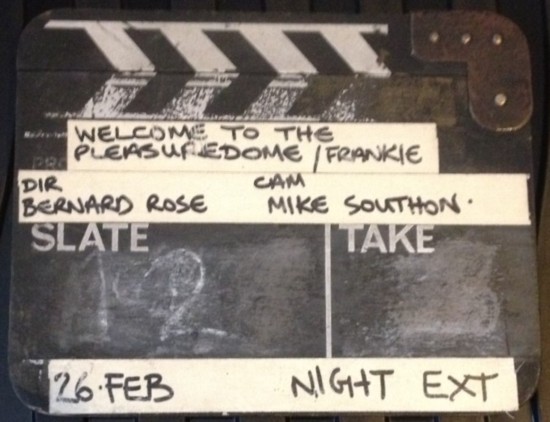 WELCOME TO THE
PLEASUREDOME / FRANKIE
DIR CAM
BERNARD ROSE MIKE SOUTHON.
SLATE TAKE
12
26.FEB NIGHT EXT